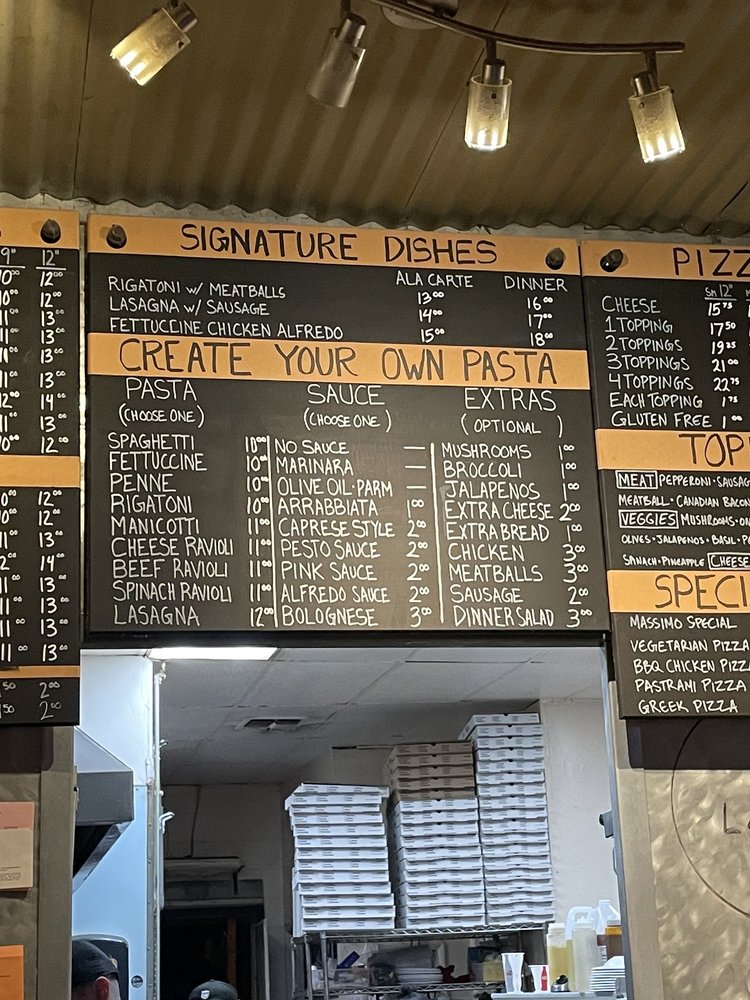 9" 12"
10⁰⁰ 12⁰⁰
10 12⁰⁰
11 13⁰⁰
11 13⁰⁰
11 13⁰⁰
11 13⁰⁰
12 14⁰⁰
11 13⁰⁰
10 12⁰⁰
10⁰⁰ 12⁰⁰
10 12⁰⁰
11 13⁰⁰
12 14⁰⁰
11 13⁰⁰
11 13⁰⁰
11 13⁰⁰
11 13⁰⁰
2⁰⁰
2⁰⁰
SIGNATURE DISHES
ALA CARTE DINNER
RIGATONI w/ MEATBALLS 13⁰⁰ 16⁰⁰
LASAGNA w/ SAUSAGE 14⁰⁰ 17⁰⁰
FETTUCCINE CHICKEN ALFREDO 15⁰⁰ 18⁰⁰
CREATE YOUR OWN PASTA
PASTA
(CHOOSE ONE)
SPAGHETTI 10⁰⁰
FETTUCCINE 10⁰⁰
PENNE 10⁰⁰
RIGATONI 10⁰⁰
MANICOTTI 11⁰⁰
CHEESE RAVIOLI 11⁰⁰
BEEF RAVIOLI 11⁰⁰
SPINACH RAVIOLI 11⁰⁰
LASAGNA 12⁰⁰
SAUCE
(CHOOSE ONE)
NO SAUCE —
MARINARA —
OLIVE OIL·PARM —
ARRABBIATA 1⁰⁰
CAPRESE STYLE 2⁰⁰
PESTO SAUCE 2⁰⁰
PINK SAUCE 2⁰⁰
ALFREDO SAUCE 2⁰⁰
BOLOGNESE 3⁰⁰
EXTRAS
(OPTIONAL)
MUSHROOMS 1⁰⁰
BROCCOLI 1⁰⁰
JALAPENOS 1⁰⁰
EXTRA CHEESE 2⁰⁰
EXTRA BREAD 1⁰⁰
CHICKEN 3⁰⁰
MEATBALLS 3⁰⁰
SAUSAGE 2⁰⁰
DINNER SALAD 3⁰⁰
PIZZ
SM 12"
CHEESE 15⁷⁵
1 TOPPING 17⁵⁰
2 TOPPINGS 19²⁵
3 TOPPINGS 21⁰⁰
4 TOPPINGS 22⁷⁵
EACH TOPPING 1⁷⁵
GLUTEN FREE 1⁰⁰
TOP
MEAT PEPPERONI·SAUSAG
MEATBALL·CANADIAN BACON
VEGGIES MUSHROOMS·ON
OLIVES·JALAPENOS·BASIL·P
SPINACH·PINEAPPLE CHEESE
SPECI
MASSIMO SPECIAL
VEGETARIAN PIZZA
BBQ CHICKEN PIZZA
PASTRAMI PIZZA
GREEK PIZZA